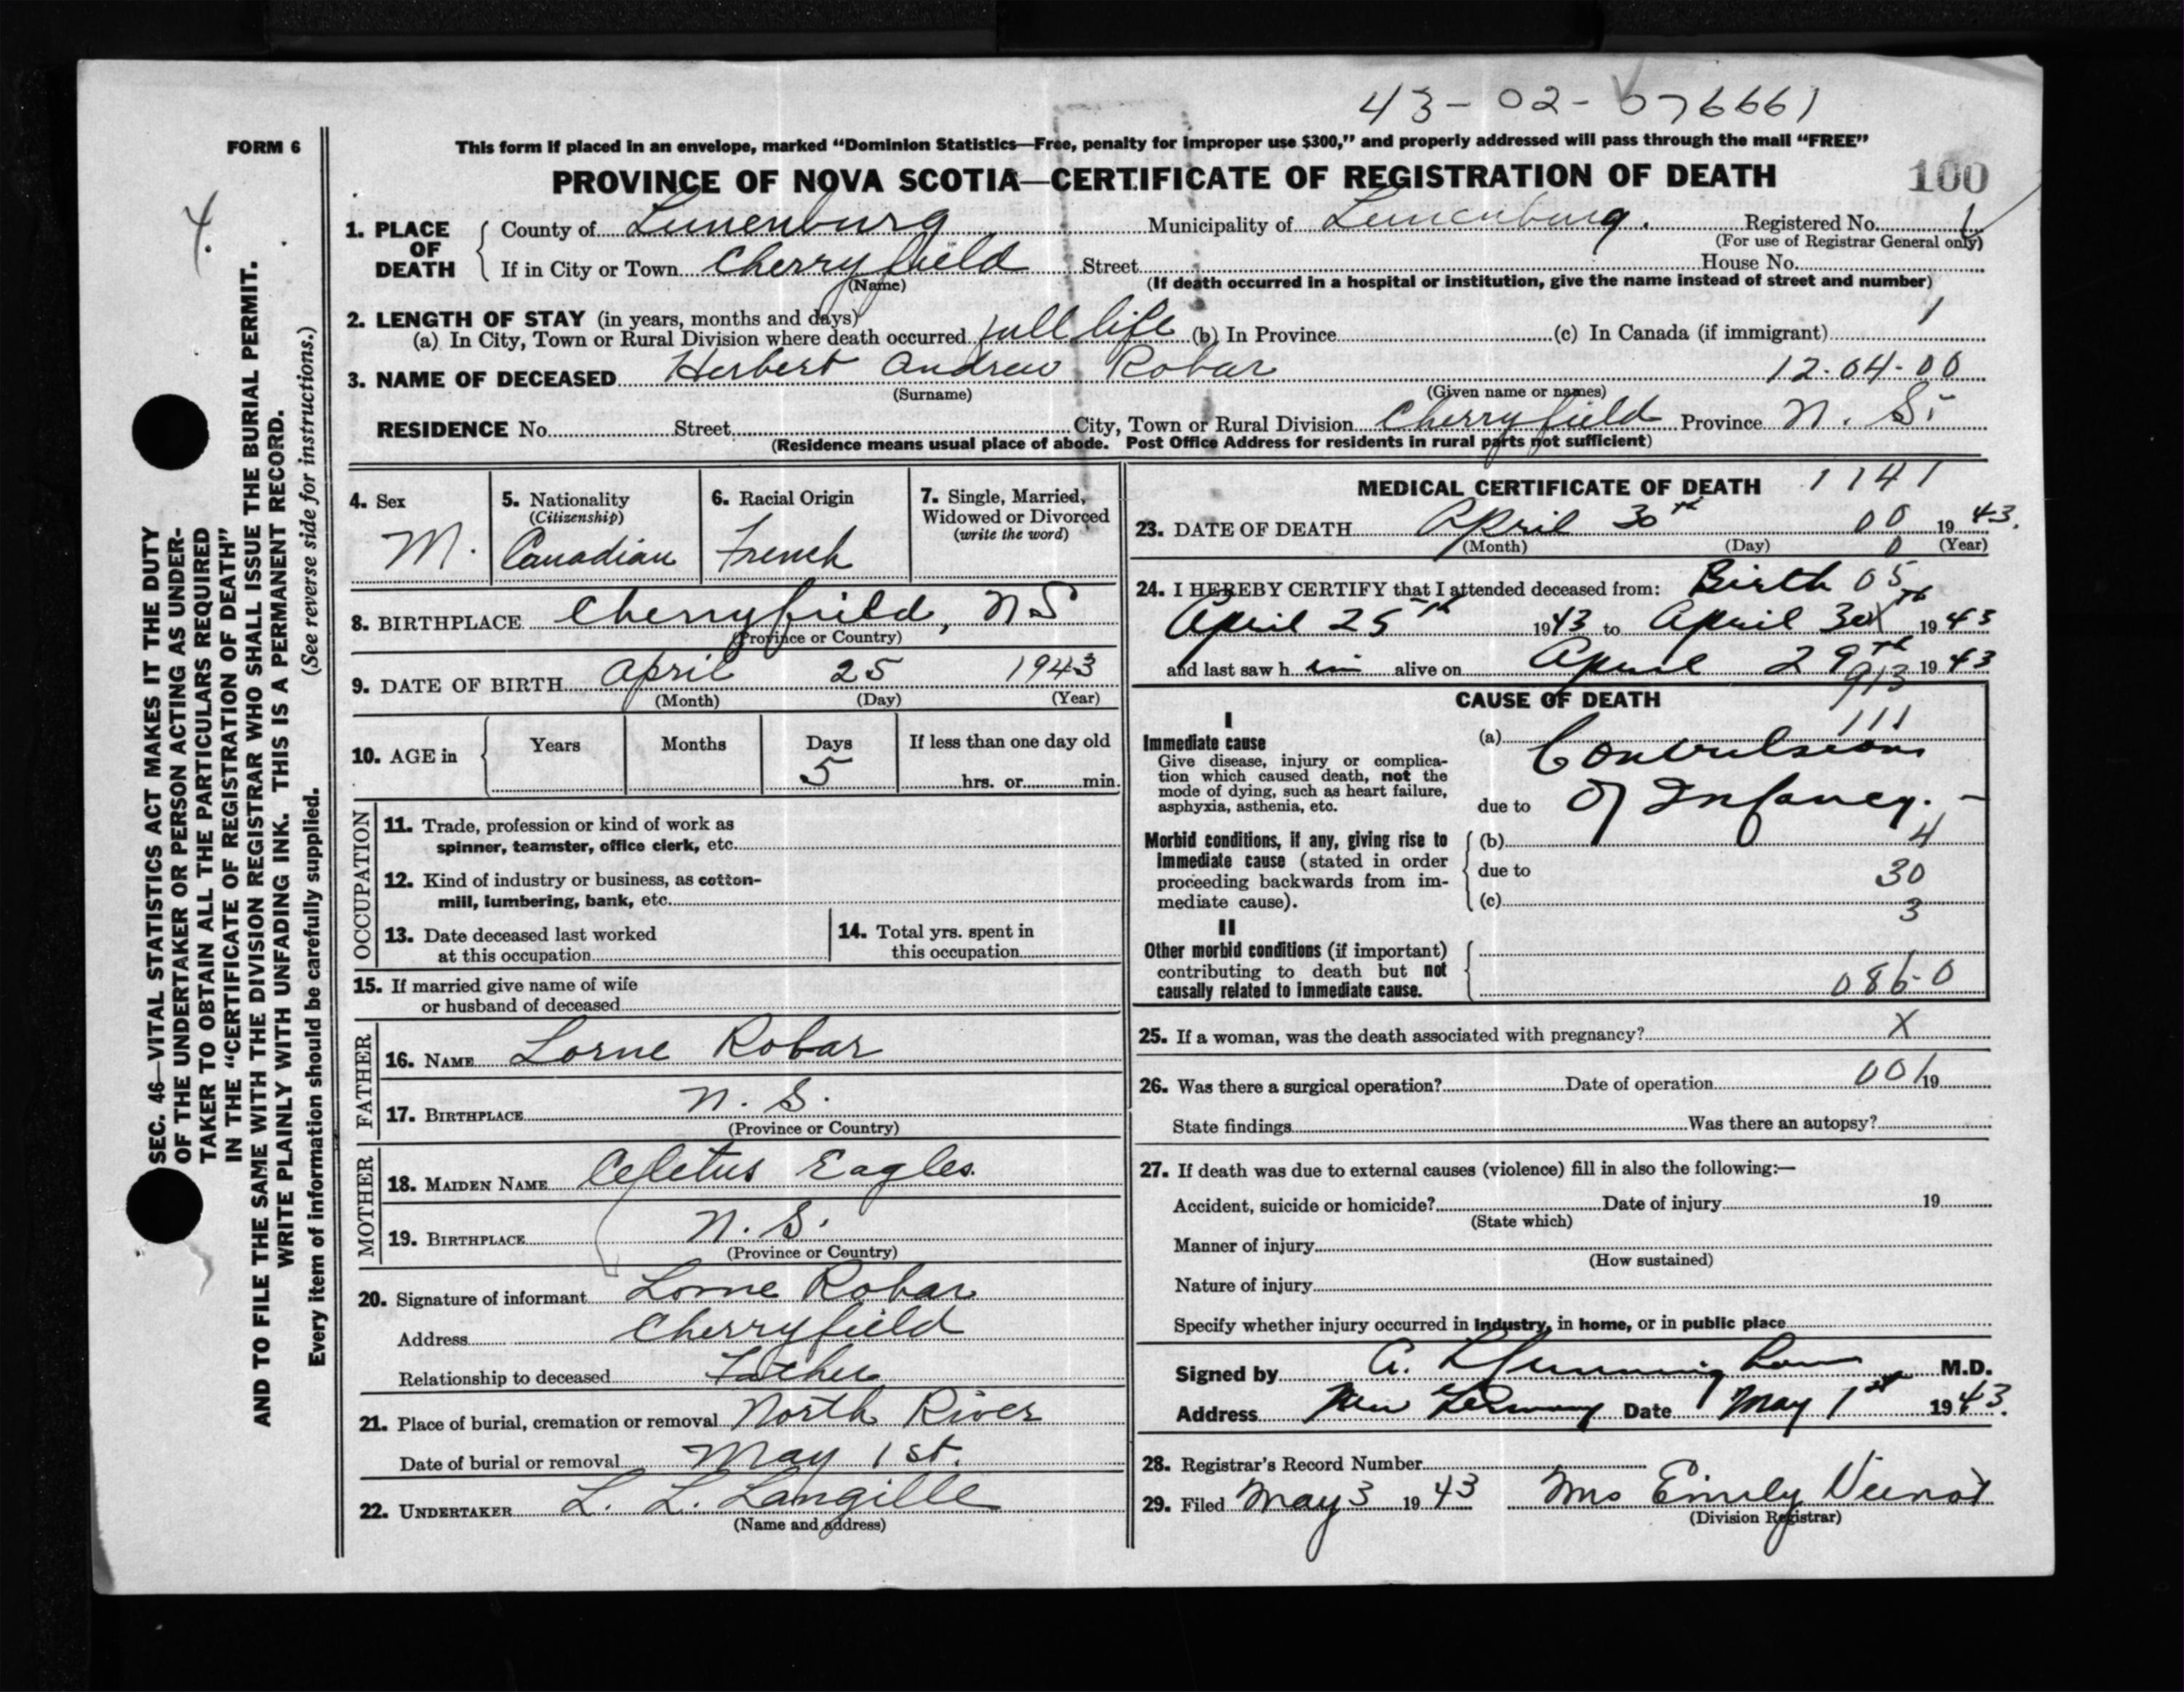 43-02-076661
FORM 6
This form if placed in an envelope, marked "Dominion Statistics—Free, penalty for improper use $300," and properly addressed will pass through the mail "FREE"
PROVINCE OF NOVA SCOTIA—CERTIFICATE OF REGISTRATION OF DEATH 100
4.
SEC. 46—VITAL STATISTICS ACT MAKES IT THE DUTY
OF THE UNDERTAKER OR PERSON ACTING AS UNDER-
TAKER TO OBTAIN ALL THE PARTICULARS REQUIRED
IN THE "CERTIFICATE OF REGISTRATION OF DEATH"
AND TO FILE THE SAME WITH THE DIVISION REGISTRAR WHO SHALL ISSUE THE BURIAL PERMIT.
WRITE PLAINLY WITH UNFADING INK. THIS IS A PERMANENT RECORD.
Every item of information should be carefully supplied. (See reverse side for instructions.)
1. PLACE OF DEATH
County of Lunenburg Municipality of Lunenburg. Registered No.
(For use of Registrar General only)
If in City or Town Cherryfield Street House No.
(Name) (If death occurred in a hospital or institution, give the name instead of street and number)
2. LENGTH OF STAY (in years, months and days) 1
(a) In City, Town or Rural Division where death occurred full life (b) In Province (c) In Canada (if immigrant)
3. NAME OF DECEASED Herbert Andrew Robar 12-04-00
(Surname) (Given name or names)
RESIDENCE No. Street City, Town or Rural Division Cherryfield Province N. S.
(Residence means usual place of abode. Post Office Address for residents in rural parts not sufficient)
4. Sex
M.
5. Nationality
(Citizenship)
Canadian
6. Racial Origin
French
7. Single, Married,
Widowed or Divorced
(write the word)
8. BIRTHPLACE Cherryfield, NS
(Province or Country)
9. DATE OF BIRTH April 25 1943
(Month) (Day) (Year)
10. AGE in Years Months Days If less than one day old
5 hrs. or min.
OCCUPATION
11. Trade, profession or kind of work as
spinner, teamster, office clerk, etc.
12. Kind of industry or business, as cotton-
mill, lumbering, bank, etc.
13. Date deceased last worked
at this occupation
14. Total yrs. spent in
this occupation
15. If married give name of wife
or husband of deceased
FATHER
16. NAME Lorne Robar
17. BIRTHPLACE N. S.
(Province or Country)
MOTHER
18. MAIDEN NAME Celetus Eagles
19. BIRTHPLACE N. S.
(Province or Country)
20. Signature of informant Lorne Robar
Address Cherryfield
Relationship to deceased Father
21. Place of burial, cremation or removal North River
Date of burial or removal May 1st.
22. UNDERTAKER L. L. Langille
(Name and address)
MEDICAL CERTIFICATE OF DEATH 1141
23. DATE OF DEATH April 30th 00 1943.
(Month) (Day) 0 (Year)
24. I HEREBY CERTIFY that I attended deceased from: Birth 05
April 25th 1943 to April 30th 1943
and last saw him alive on April 29th 1943
913
CAUSE OF DEATH
111
I
Immediate cause
Give disease, injury or complica-
tion which caused death, not the
mode of dying, such as heart failure,
asphyxia, asthenia, etc.
(a) Convulsions
due to Of Infancy. -
Morbid conditions, if any, giving rise to
immediate cause (stated in order
proceeding backwards from im-
mediate cause).
(b) 4
due to 30
(c) 3
II
Other morbid conditions (if important)
contributing to death but not
causally related to immediate cause.
086-0
25. If a woman, was the death associated with pregnancy? X
26. Was there a surgical operation? Date of operation 001 19
State findings Was there an autopsy?
27. If death was due to external causes (violence) fill in also the following:—
Accident, suicide or homicide? Date of injury 19
(State which)
Manner of injury
(How sustained)
Nature of injury
Specify whether injury occurred in industry, in home, or in public place
Signed by A. M.D.
Address New Germany Date May 1st 1943.
28. Registrar's Record Number
29. Filed May 3 1943 Mrs Emily Veinot
(Division Registrar)